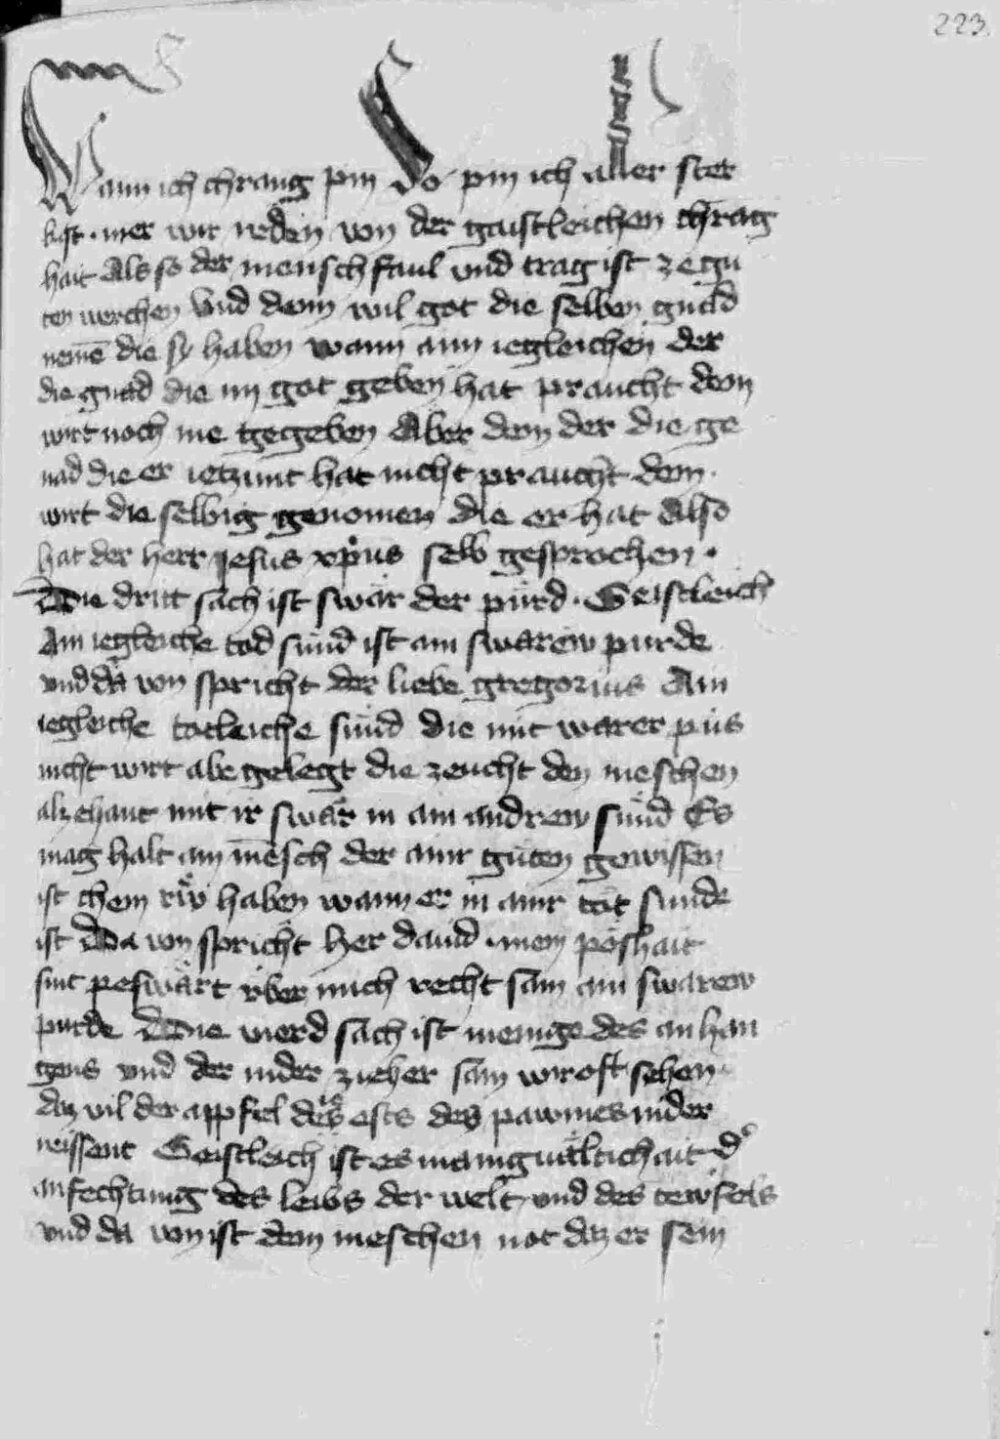 223
Wann ich chrang pin So pin ich aller ster
kist · mer wir reden von der gaistleichen chrag
hait Als so der mensch faul vnd trag ist ze gu
ten werchen Vnd dann wil got die selben gnad
neme̅ die sy haben wann ainn iegleichen der
die gnad die im got geben hat praucht dem
wirt noch me gegeben Aber dem der die ge
nad die er ietzunt hat nicht praucht dem ·
wirt die selbig genomen die er hat Also
hat der herr jesus xp̅us selb gesprochen ·
Die dritt sach ist swär der pürd · Geistleich
Ain iegleiche tod sünd ist ain swarew purde
vnd da von spricht der liebe gregorius Ain
iegleiche totleiche sünd die mit warer pus
nicht wirt abe gelegt die zeucht den meschen
alzehant mit ir swär in ain andrew sünd Es
mag halt ain me̅sch der ainr guten gewissen
ist chein rüw haben wann er in ainr tot sunde
ist Da von spricht her dauid · mein poshait
sint peswärt vber mich recht sam ain swarew
purde Die vierd sach ist menige des an han
gens vnd der nider zieher sam wir oft sehen ·
daz vil der appfel des ests des pawmes nider
reissent Geistleich ist es manigualtichait d'
anfechtung des leibs der welt vnd des tewfels
vnd da von ist dem meschen not daz er sein